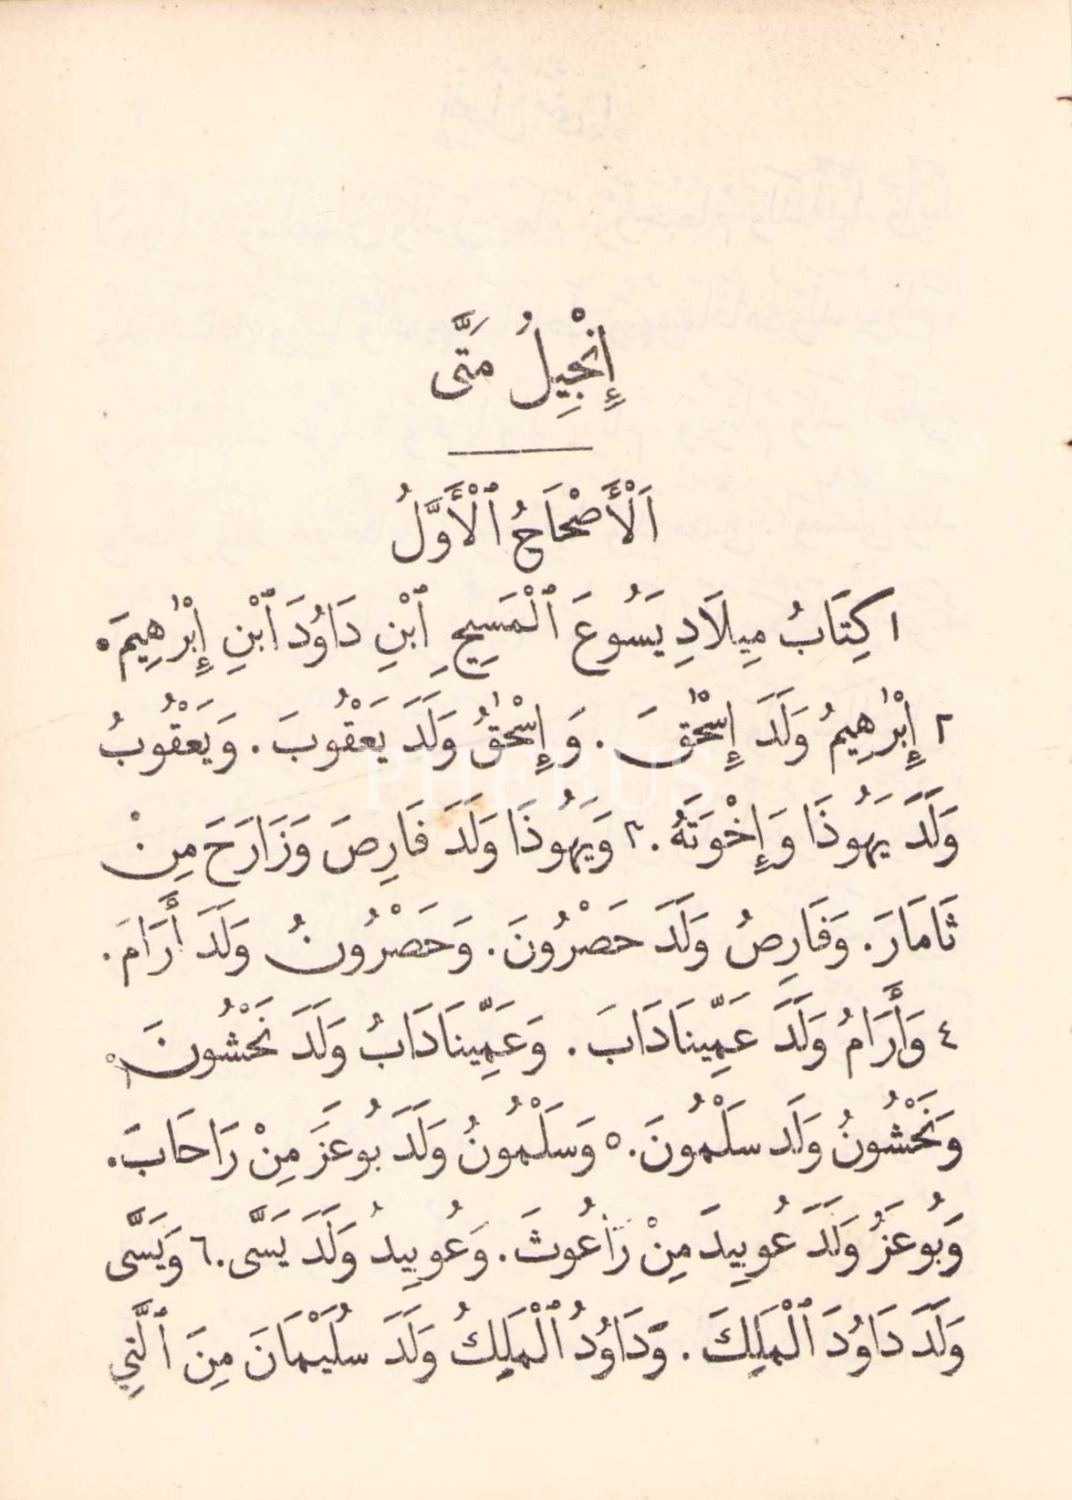 إِنْجِيلُ مَتَّى
اَلْأَصْحَاحُ ٱلْأَوَّلُ
١ كِتَابُ مِيلَادِ يَسُوعَ ٱلْمَسِيحِ ٱبْنِ دَاوُدَ ٱبْنِ إِبْرٰهِيمَ.
٢ إِبْرٰهِيمُ وَلَدَ إِسْحٰقَ. وَإِسْحٰقُ وَلَدَ يَعْقُوبَ. وَيَعْقُوبُ
وَلَدَ يَهُوذَا وَإِخْوَتَهُ. ٣ وَيَهُوذَا وَلَدَ فَارِصَ وَزَارَحَ مِنْ
ثَامَارَ. وَفَارِصُ وَلَدَ حَصْرُونَ. وَحَصْرُونُ وَلَدَ أَرَامَ.
٤ وَأَرَامُ وَلَدَ عَمِّينَادَابَ. وَعَمِّينَادَابُ وَلَدَ نَحْشُونَ.
وَنَحْشُونُ وَلَدَ سَلْمُونَ. ٥ وَسَلْمُونُ وَلَدَ بُوعَزَ مِنْ رَاحَابَ.
وَبُوعَزُ وَلَدَ عُوبِيدَ مِنْ رَاعُوثَ. وَعُوبِيدُ وَلَدَ يَسَّى. ٦ وَيَسَّى
وَلَدَ دَاوُدَ ٱلْمَلِكَ. وَدَاوُدُ ٱلْمَلِكُ وَلَدَ سُلَيْمَانَ مِنَ ٱلَّتِي
PHEBUS